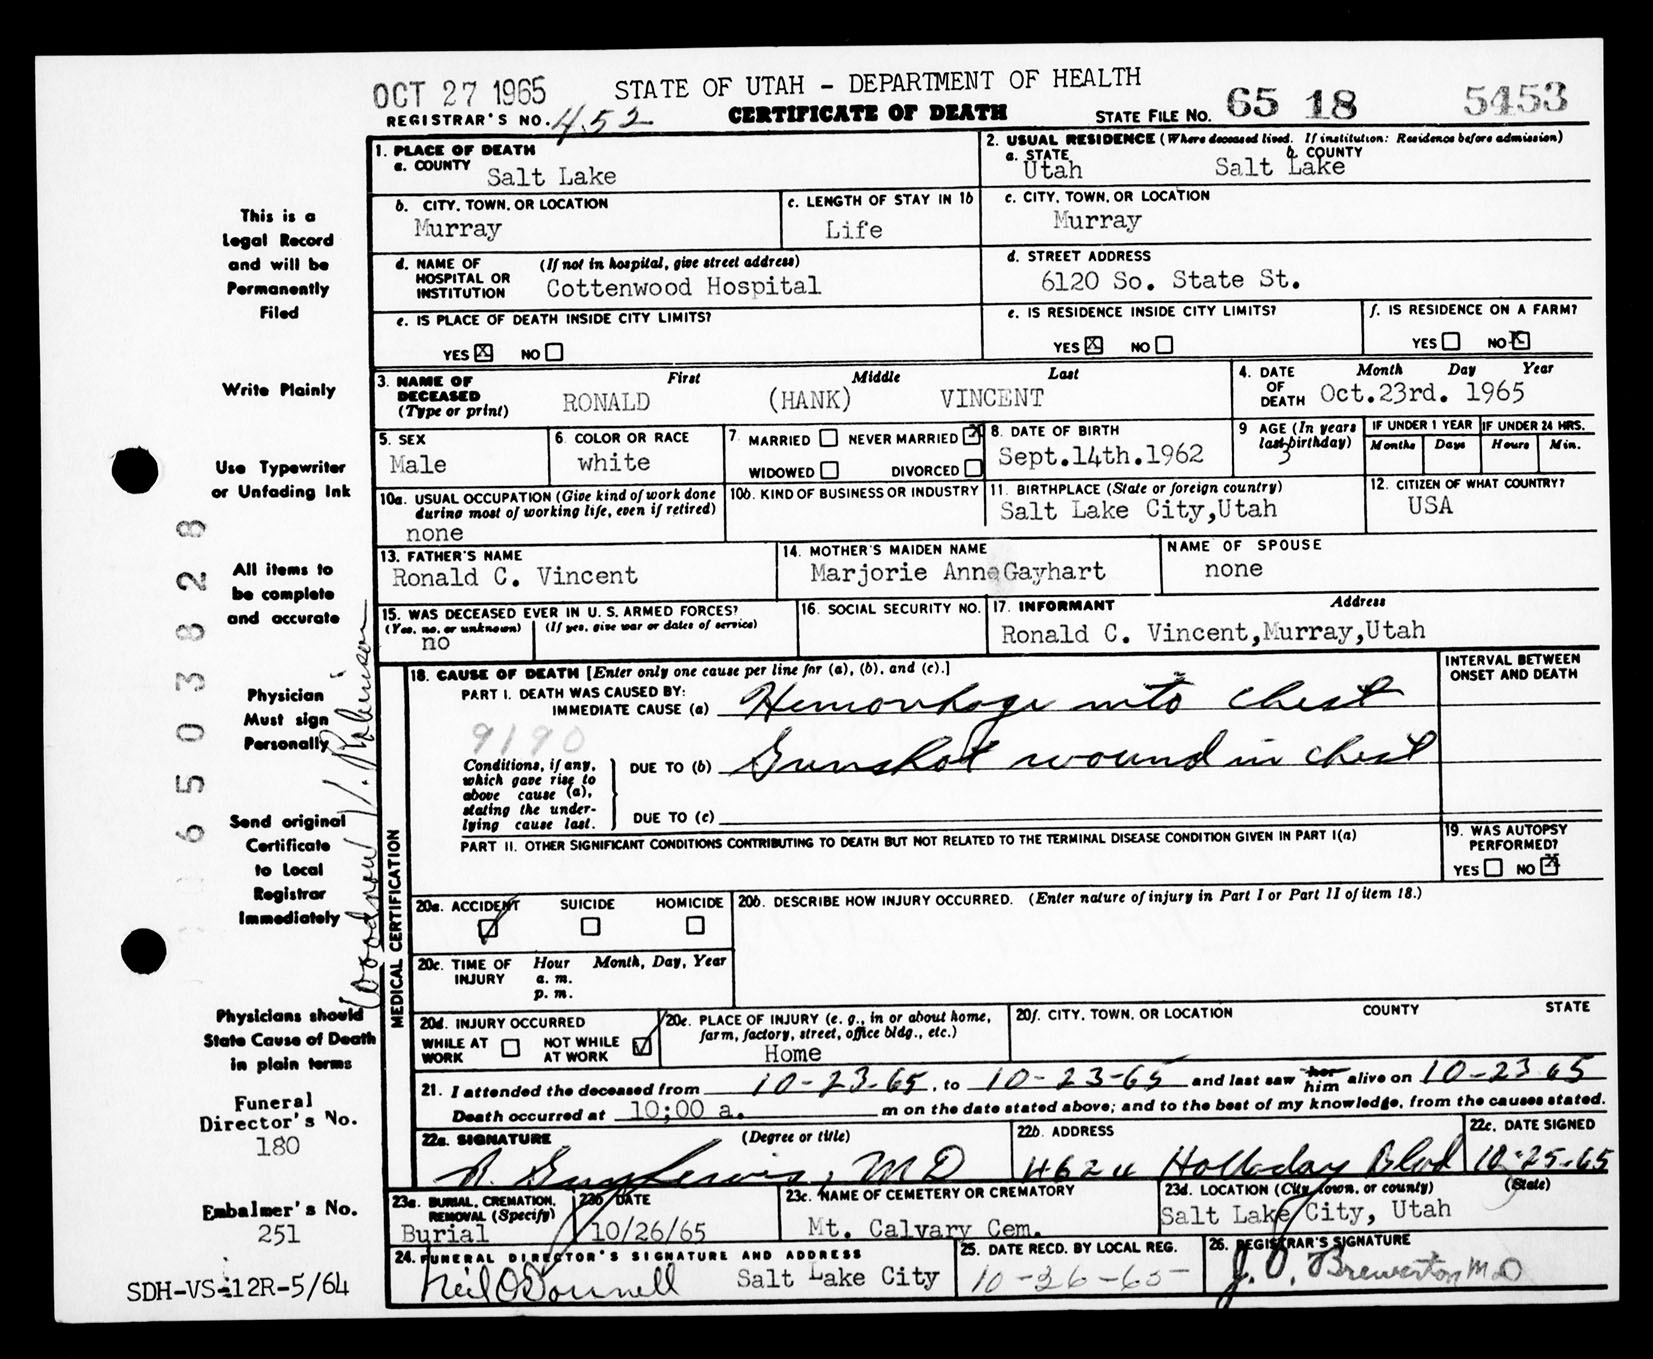 OCT 27 1965
STATE OF UTAH - DEPARTMENT OF HEALTH
REGISTRAR'S NO. 452
CERTIFICATE OF DEATH
STATE FILE NO. 65 18 5453
1. PLACE OF DEATH
a. COUNTY
Salt Lake
2. USUAL RESIDENCE (Where deceased lived. If institution: Residence before admission)
a. STATE b. COUNTY
Utah Salt Lake
b. CITY, TOWN, OR LOCATION
Murray
c. LENGTH OF STAY IN 1b
Life
c. CITY, TOWN, OR LOCATION
Murray
d. NAME OF HOSPITAL OR INSTITUTION (If not in hospital, give street address)
Cottenwood Hospital
d. STREET ADDRESS
6120 So. State St.
e. IS PLACE OF DEATH INSIDE CITY LIMITS?
YES X NO
e. IS RESIDENCE INSIDE CITY LIMITS?
YES X NO
f. IS RESIDENCE ON A FARM?
YES NO X
3. NAME OF DECEASED (Type or print)
First Middle Last
RONALD (HANK) VINCENT
4. DATE OF DEATH
Month Day Year
Oct.23rd. 1965
5. SEX
Male
6. COLOR OR RACE
white
7. MARRIED NEVER MARRIED X
WIDOWED DIVORCED
8. DATE OF BIRTH
Sept.14th.1962
9 AGE (In years last birthday)
3
IF UNDER 1 YEAR
Months Days
IF UNDER 24 HRS.
Hours Min.
10a. USUAL OCCUPATION (Give kind of work done during most of working life, even if retired)
none
10b. KIND OF BUSINESS OR INDUSTRY
11. BIRTHPLACE (State or foreign country)
Salt Lake City,Utah
12. CITIZEN OF WHAT COUNTRY?
USA
13. FATHER'S NAME
Ronald C. Vincent
14. MOTHER'S MAIDEN NAME
Marjorie Anne Gayhart
NAME OF SPOUSE
none
15. WAS DECEASED EVER IN U. S. ARMED FORCES?
(Yes, no, or unknown) (If yes, give war or dates of service)
no
16. SOCIAL SECURITY NO.
17. INFORMANT Address
Ronald C. Vincent,Murray,Utah
MEDICAL CERTIFICATION
18. CAUSE OF DEATH [Enter only one cause per line for (a), (b), and (c).]
INTERVAL BETWEEN ONSET AND DEATH
PART I. DEATH WAS CAUSED BY:
IMMEDIATE CAUSE (a) Hemorrhage into chest
9190
Conditions, if any, which gave rise to above cause (a), stating the underlying cause last.
DUE TO (b) Gunshot wound in chest
DUE TO (c)
PART II. OTHER SIGNIFICANT CONDITIONS CONTRIBUTING TO DEATH BUT NOT RELATED TO THE TERMINAL DISEASE CONDITION GIVEN IN PART I(a)
19. WAS AUTOPSY PERFORMED?
YES NO X
20a. ACCIDENT SUICIDE HOMICIDE
20b. DESCRIBE HOW INJURY OCCURRED. (Enter nature of injury in Part I or Part II of item 18.)
20c. TIME OF INJURY Hour Month, Day, Year
a. m.
p. m.
20d. INJURY OCCURRED
WHILE AT WORK NOT WHILE AT WORK
20e. PLACE OF INJURY (e. g., in or about home, farm, factory, street, office bldg., etc.)
Home
20f. CITY, TOWN, OR LOCATION COUNTY STATE
21. I attended the deceased from 10-23-65, to 10-23-65 and last saw her him alive on 10-23 65
Death occurred at 10;00 a. m on the date stated above; and to the best of my knowledge, from the causes stated.
22a. SIGNATURE (Degree or title)
MD
22b. ADDRESS
Holladay Blvd
22c. DATE SIGNED
10-25-65
23a. BURIAL, CREMATION, REMOVAL (Specify)
Burial
23b DATE
10/26/65
23c. NAME OF CEMETERY OR CREMATORY
Mt. Calvary Cem.
23d. LOCATION (City, town, or county) (State)
Salt Lake City, Utah
24. FUNERAL DIRECTOR'S SIGNATURE AND ADDRESS
Neil O'Donnell Salt Lake City
25. DATE RECD. BY LOCAL REG.
10-26-65
26. REGISTRAR'S SIGNATURE
J. O. Brewerton MD
This is a
Legal Record
and will be
Permanently
Filed
Write Plainly
Use Typewriter
or Unfading Ink
All items to
be complete
and accurate
Physician
Must sign
Personally
Send original
Certificate
to Local
Registrar
Immediately
Physicians should
State Cause of Death
in plain terms
Funeral
Director's No.
180
Embalmer's No.
251
SDH-VS-12R-5/64
6503828
Woodrow V. Robinson